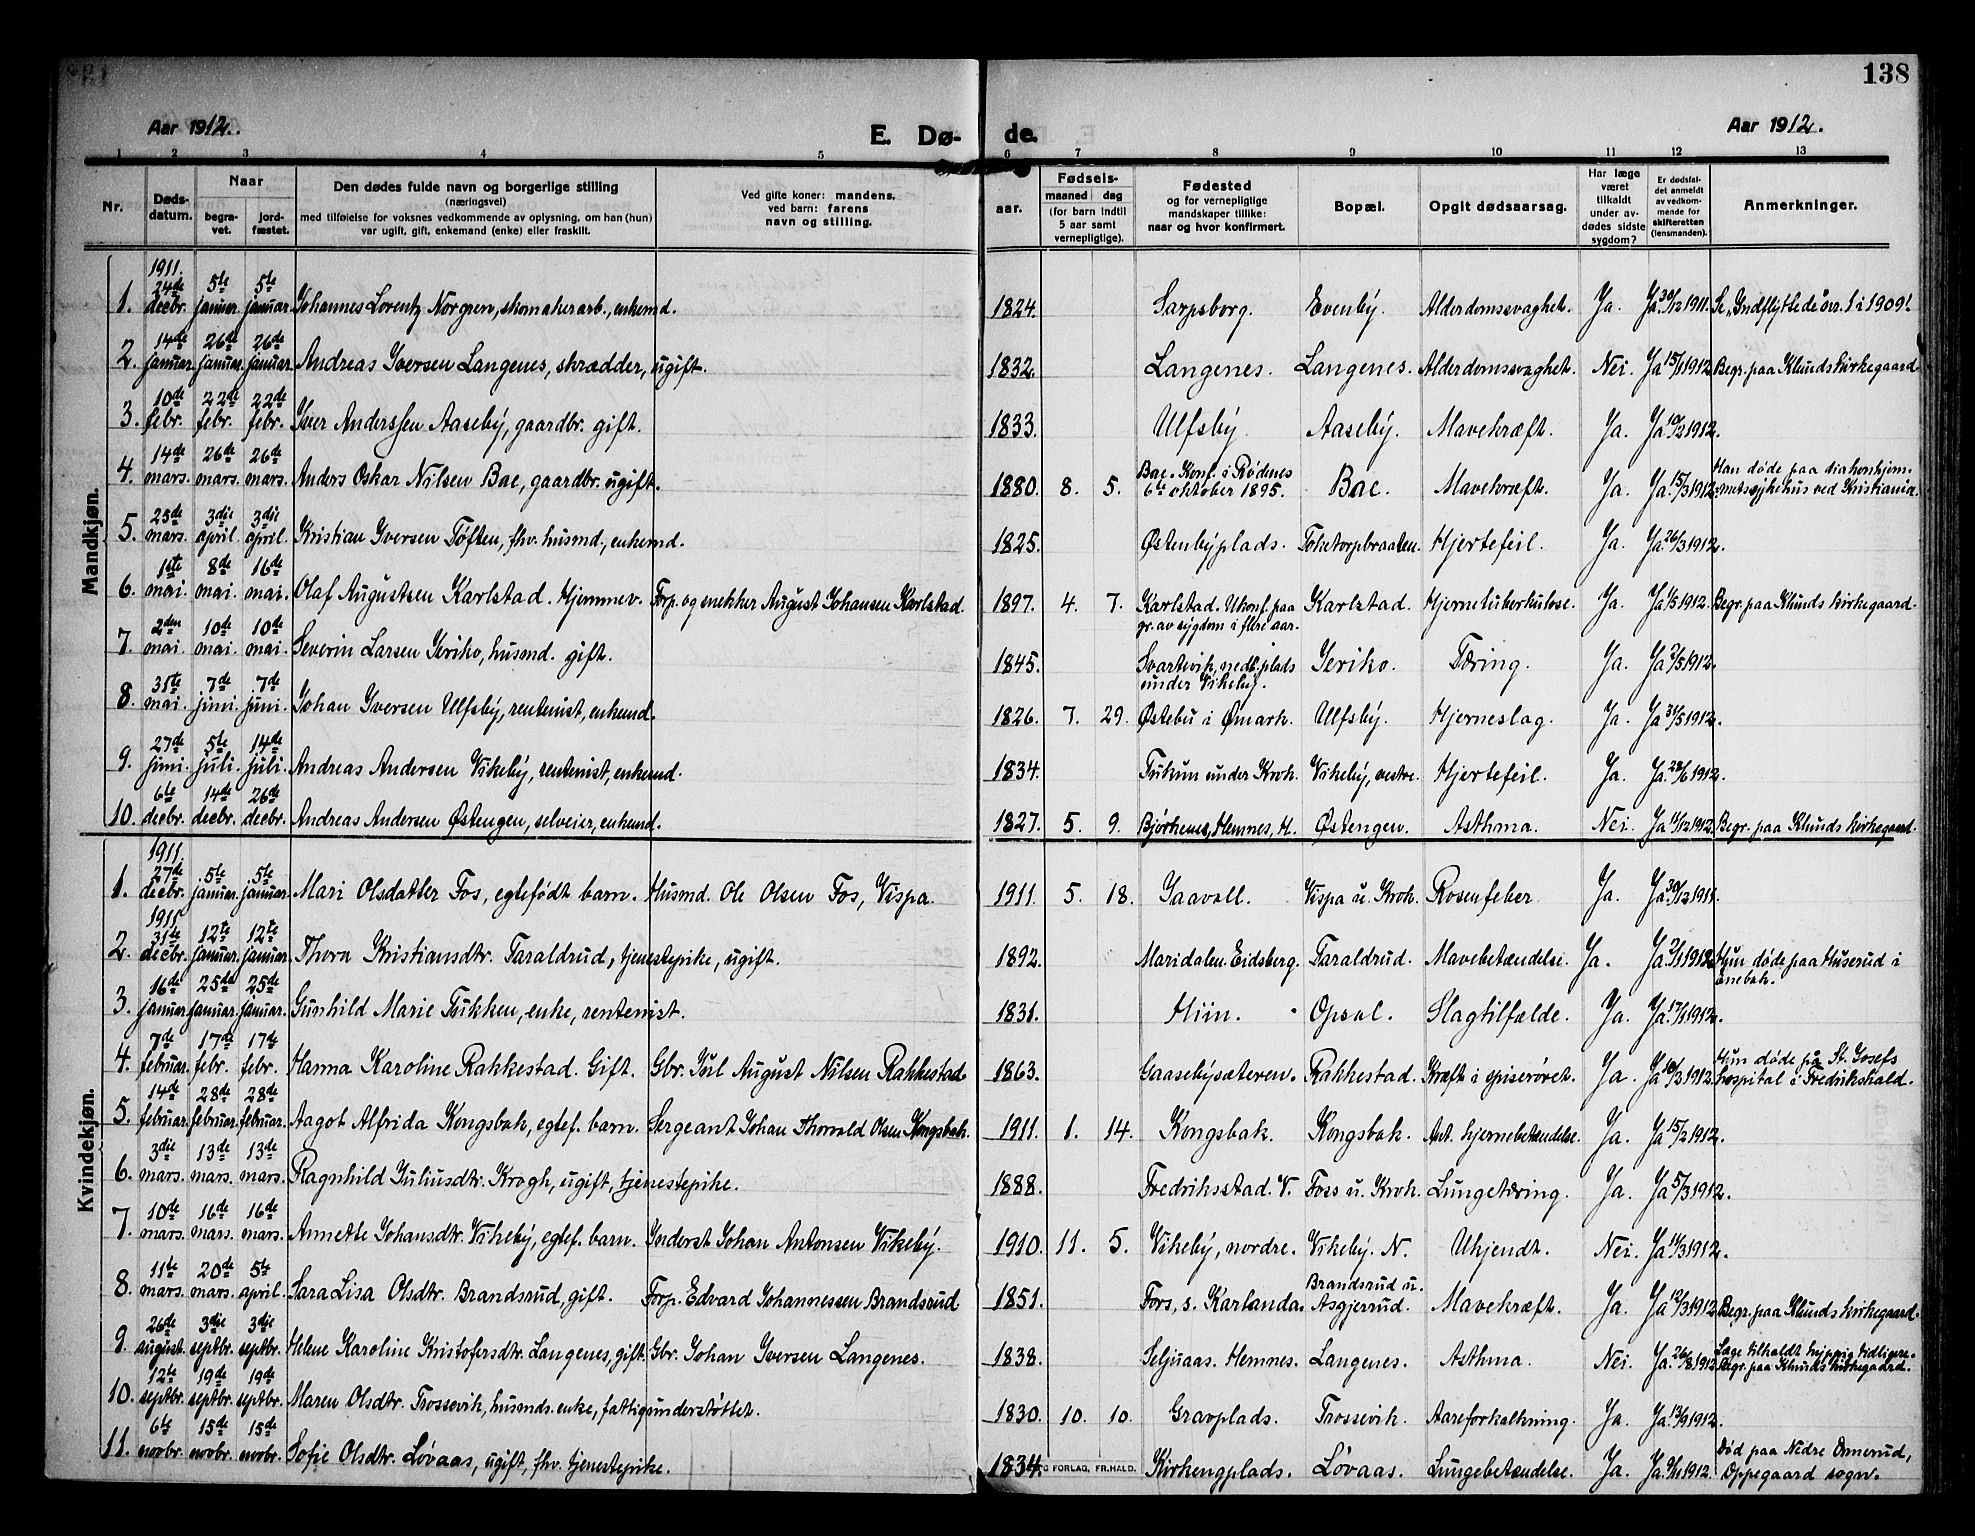 138
Aar 1912.
E. Dø-
de.
Aar 1912.
1 2 3 4 5 6 7 8 9 10 11 12 13
Nr.
Døds-
datum.
Naar
begra-
vet.
jord-
fæstet.
Den dødes fulde navn og borgerlige stilling
(næringsvei)
med tilføielse for voksnes vedkommende av oplysning, om han (hun)
var ugift, gift, enkemand (enke) eller fraskilt.
Ved gifte koner: mandens,
ved barn: farens
navn og stilling.
aar.
Fødsels-
maaned dag
(for barn indtil
5 aar samt
vernepligtige).
Fødested
og for vernepligtige
mandskaper tillike:
naar og hvor konfirmert.
Bopæl.
Opgit dødsaarsag.
Har læge
været
tilkaldt
under av-
dødes sidste
sygdom?
Er dødsfal-
det anmeldt
av vedkom-
mende for
skifteretten
(lensmanden).
Anmerkninger.
Mandkjøn.
1911.
1. 24de decbr. 5te januar. 5te januar. Johannes Lorentz Norgren, skomakerarb., enkemd. 1824. Sarpsborg. Evenby. Alderdomssvaghet. Ja. Ja 30/12 1911. Se „Indflyttede“ nr. 1 i 1909!
2. 14de januar. 26de januar. 26de januar. Andreas Iversen Langenes, skrædder, ugift. 1832. Langenes. Langenes. Alderdomssvaghet. Nei. Ja 15/1 1912. Begr. paa Klunds kirkegaard.
3. 10de febr. 22de febr. 22de febr. Iver Anderssen Aaseby, gaardbr. gift. 1833. Ulfsby. Aaseby. Mavekræft. Ja. Ja 10/2 1912.
4. 14de mars. 26de mars. 26de mars. Anders Oskar Nilsen Bae, gaardbr. ugift. 1880. 8. 5. Bae. Konf. i Rødenes
6te oktober 1895. Bae. Mavekræft. Ja. Ja. 15/3 1912. Han døde paa diakonhjem-
metssykehus ved Kristiania.
5. 25de mars. 3die april. 3die april. Kristian Iversen Tøften, fhv. husmd, enkemd. 1825. Østenbyplads. Toketorpbraaten. Hjertefeil. Ja. Ja 26/3 1912.
6. 1ste mai. 8de mai. 16de mai. Olaf Augustsen Karlstad. Hjemmev. Forp. og snekker August Johansen Karlstad 1897. 4. 7. Karlstad. Ukonf. paa
gr. av sygdom i flere aar. Karlstad. Hjernetuberkulose. Ja. Ja 1/5 1912. Begr. paa Klunds kirkegaard.
7. 2den mai. 10de mai. 10de mai. Severin Larsen Jeriko, husmd. gift. 1845. Svartevik, nedl. plads
under Vikeby. Jeriko. Tæring. Ja. Ja 2/5 1912.
8. 31te mai. 7de juni. 7de juni. Johan Iversen Ulfsby, rentenist, enkemd. 1826. 7. 29. Østebu i Ømark. Ulfsby. Hjerneslag. Ja. Ja 31/5 1912.
9. 27de juni. 5te juli. 14de juli. Andreas Andersen Vikeby, rentenist, enkemd. 1834. Tukun under Krok. Vikeby, vestre. Hjertefeil. Ja. Ja. 28/6 1912.
10. 6te decbr. 14de decbr. 26de decbr. Andreas Andersen Østengen, selveier, enkemd. 1827. 5. 9. Bjørkenes, Hemnes, H. Østengen. Asthma. Nei. Ja 11/12 1912. Begr. paa Klunds kirkegaard.
Kvindekjøn.
1911.
1. 27de decbr. 5te januar. 5te januar. Mari Olsdatter Fos, egtefødt barn. Husmd. Ole Olsen Fos, Vispa. 1911. 5. 18. Gaavoll. Vispa u. Krok. Rosenfeber. Ja. Ja. 30/12 1911.
1911
2. 31te decbr. 12te januar. 12te januar. Thora Kristiansdtr. Taraldrud, tjenestepike, ugift. 1892. Maridalen. Eidsberg. Taraldrud. Mavebetændelse. Ja. Ja. 2/1 1912. Hun døde paa Huserud i
Enebak.
3. 16de januar. 25de januar. 25de januar. Gunhild Marie Tukken, enke, rentenist. 1831. Hiin. Opsal. Slagtilfælde. Ja. Ja. 17/1 1912.
4. 7de februar. 17de febr. 17de febr. Hanna Karoline Rakkestad. Gift. Gbr. Jul August Nilsen Rakkestad 1863. Gaasebysæteren. Rakkestad. Kræft i spiserøret. Ja. Ja 10/2 1912. Hun døde på St. Josefs
hospital i Fredrikshald.
5. 14de februar. 28de februar. 28de februar. Aagot Alfrida Kongsbak, egtef. barn. Sergeant Johan Thorvald Olsen Kongsbak. 1911. 1. 14. Kongsbak. Kongsbak. Ant. hjernebetændelse. Ja. Ja 15/2 1912.
6. 3die mars. 13de mars. 13de mars. Ragnhild Juliusdtr. Krogh, ugift, tjenestepike. 1888. Fredriksstad. V. Foss u. Krok. Lungetæring. Ja. Ja 5/3 1912.
7. 10de mars. 16de mars. 16de mars. Annette Johansdtr. Vikeby, egtef. barn. Inderst Johan Antonsen Vikeby. 1910. 11. 5. Vikeby, nordre. Vikeby. N. Ukjendt. Nei. Ja 11/3 1912.
8. 11te mars. 20de mars. 5te april. Sara Lisa Olsdtr. Brandsrud, gift. Forp. Edvard Johannessen Brandsrud 1851. Fors, s. Karlanda. Brandsrud u.
Asgjerrud. Mavekræft. Ja. Ja 12/3 1912. Begr. paa Klunds kirkegaard.
9. 26de august. 3die septbr. 3die septbr. Helene Karoline Kristofersdtr. Langenes, gift. Gbr. Johan Iversen Langenes. 1838. Seljuaas. Hemnes. Langenes. Asthma. Nei. Ja. 26/8 1912. Læge tilkaldt hyppig tidligere.
Begr. paa Klunds kirkegaard.
10. 12te septbr. 19de septbr. 19de septbr. Maren Olsdtr. Trossevik, husmds. enke, fattigunderstøttet. 1830. 10. 10. Gravplads. Trossevik. Aareforkalkning. Ja. Ja. 13/9 1912.
11. 6te novbr. 15de novbr. 15de novbr. Sofie Olsdtr. Løvaas, ugift, fhv. tjenestepike. 1834. Kirkengplads. Løvaas. Lungebetændelse. Ja. Ja. 9/11 1912. Død paa Nedre Ormerud,
Oppegaard sogn.
FORLAG, FR.HALD.